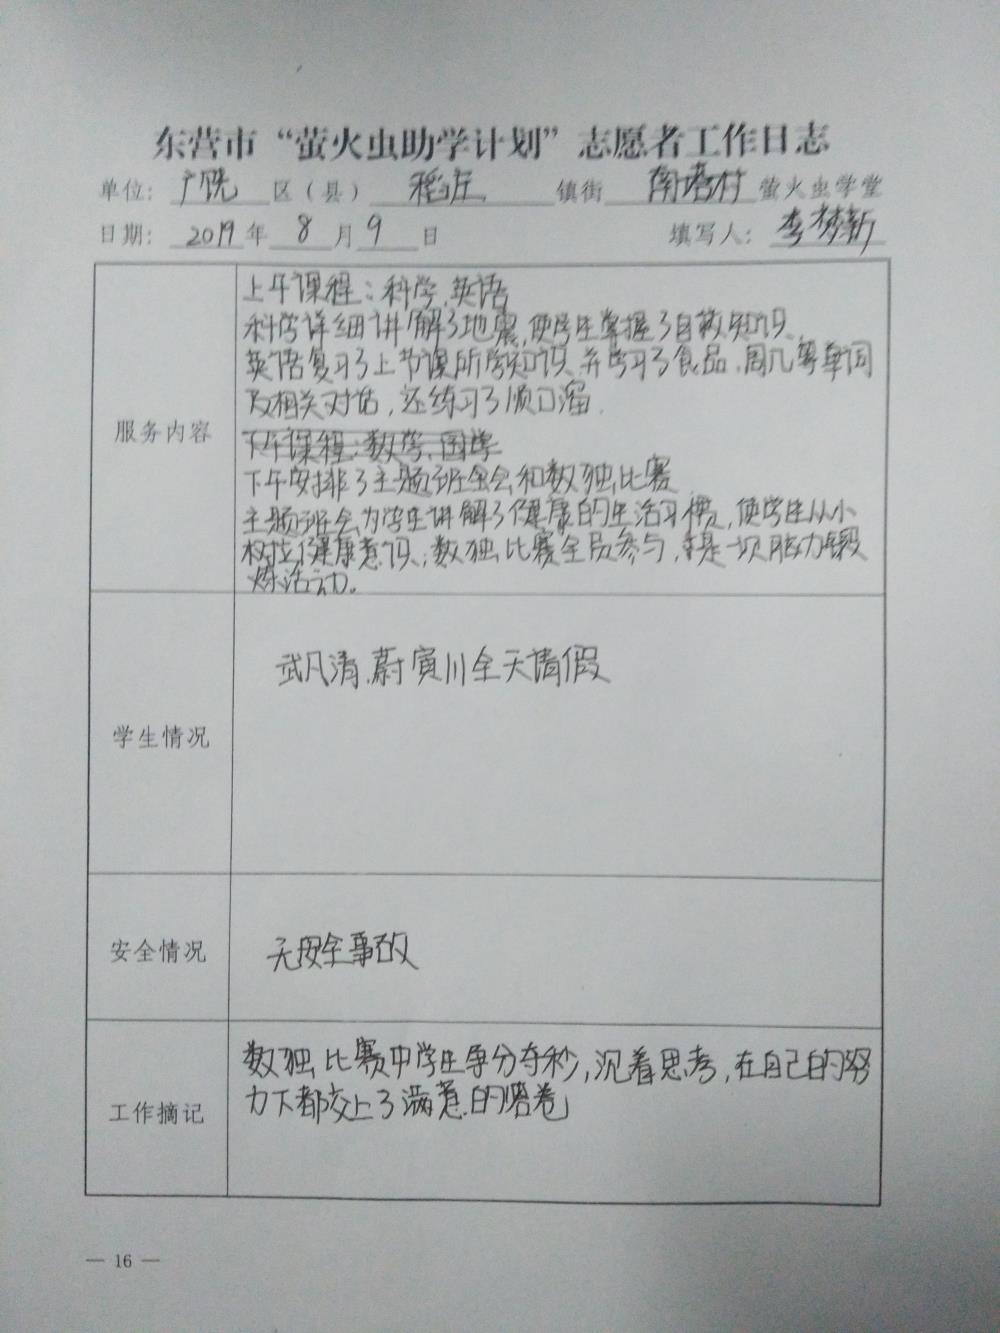 东营市“萤火虫助学计划”志愿者工作日志
单位：广饶 区（县） 稻庄 镇街 南塔村 萤火虫学堂
日期： 2019 年 8 月 9 日 填写人：李梦新
服务内容
上午课程：科学、英语
科学详细讲解了地震，使学生掌握了自救知识
英语复习了上节课所学知识，并学习了食品、周几等单词
及相关对话，还练习了顺口溜.
下午课程：数学、国学
下午安排了主题班会和数独比赛
主题班会为学生讲解了健康的生活习惯，使学生从小
树立健康意识；数独比赛全员参与，是一次脑力锻
炼活动。
学生情况
武凡清.蔚寅川全天请假
安全情况
无安全事故
工作摘记
数独比赛中学生争分夺秒，沉着思考，在自己的努
力下都交上了满意的答卷
— 16 —